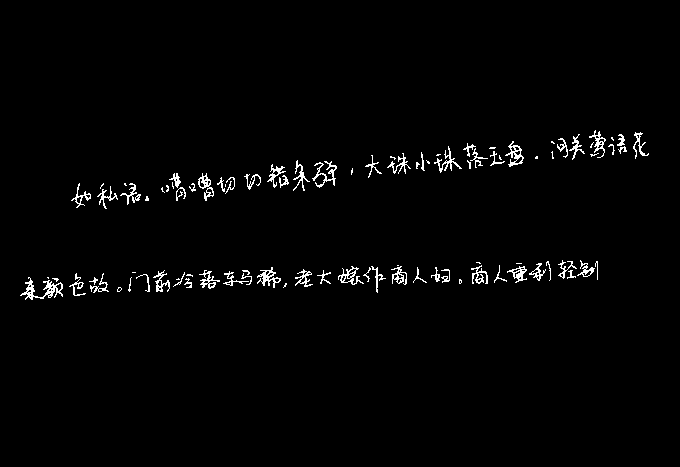 如私语。嘈嘈切切错杂弹，大珠小珠落玉盘.间关莺语花
来颜色故。门前冷落车马稀,老大嫁作商人妇。商人重利轻别